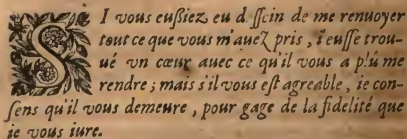 SI vous eußiez eu d ſſein de me renuoyer
tout ce que vous m'auez pris, i'euſſe trou-
ué vn cœur auec ce qu'il vous a plû me
rendre; mais s'il vous eſt agreable, ie con-
ſens qu'il vous demeure, pour gage de la fidelité que
ie vous iure.